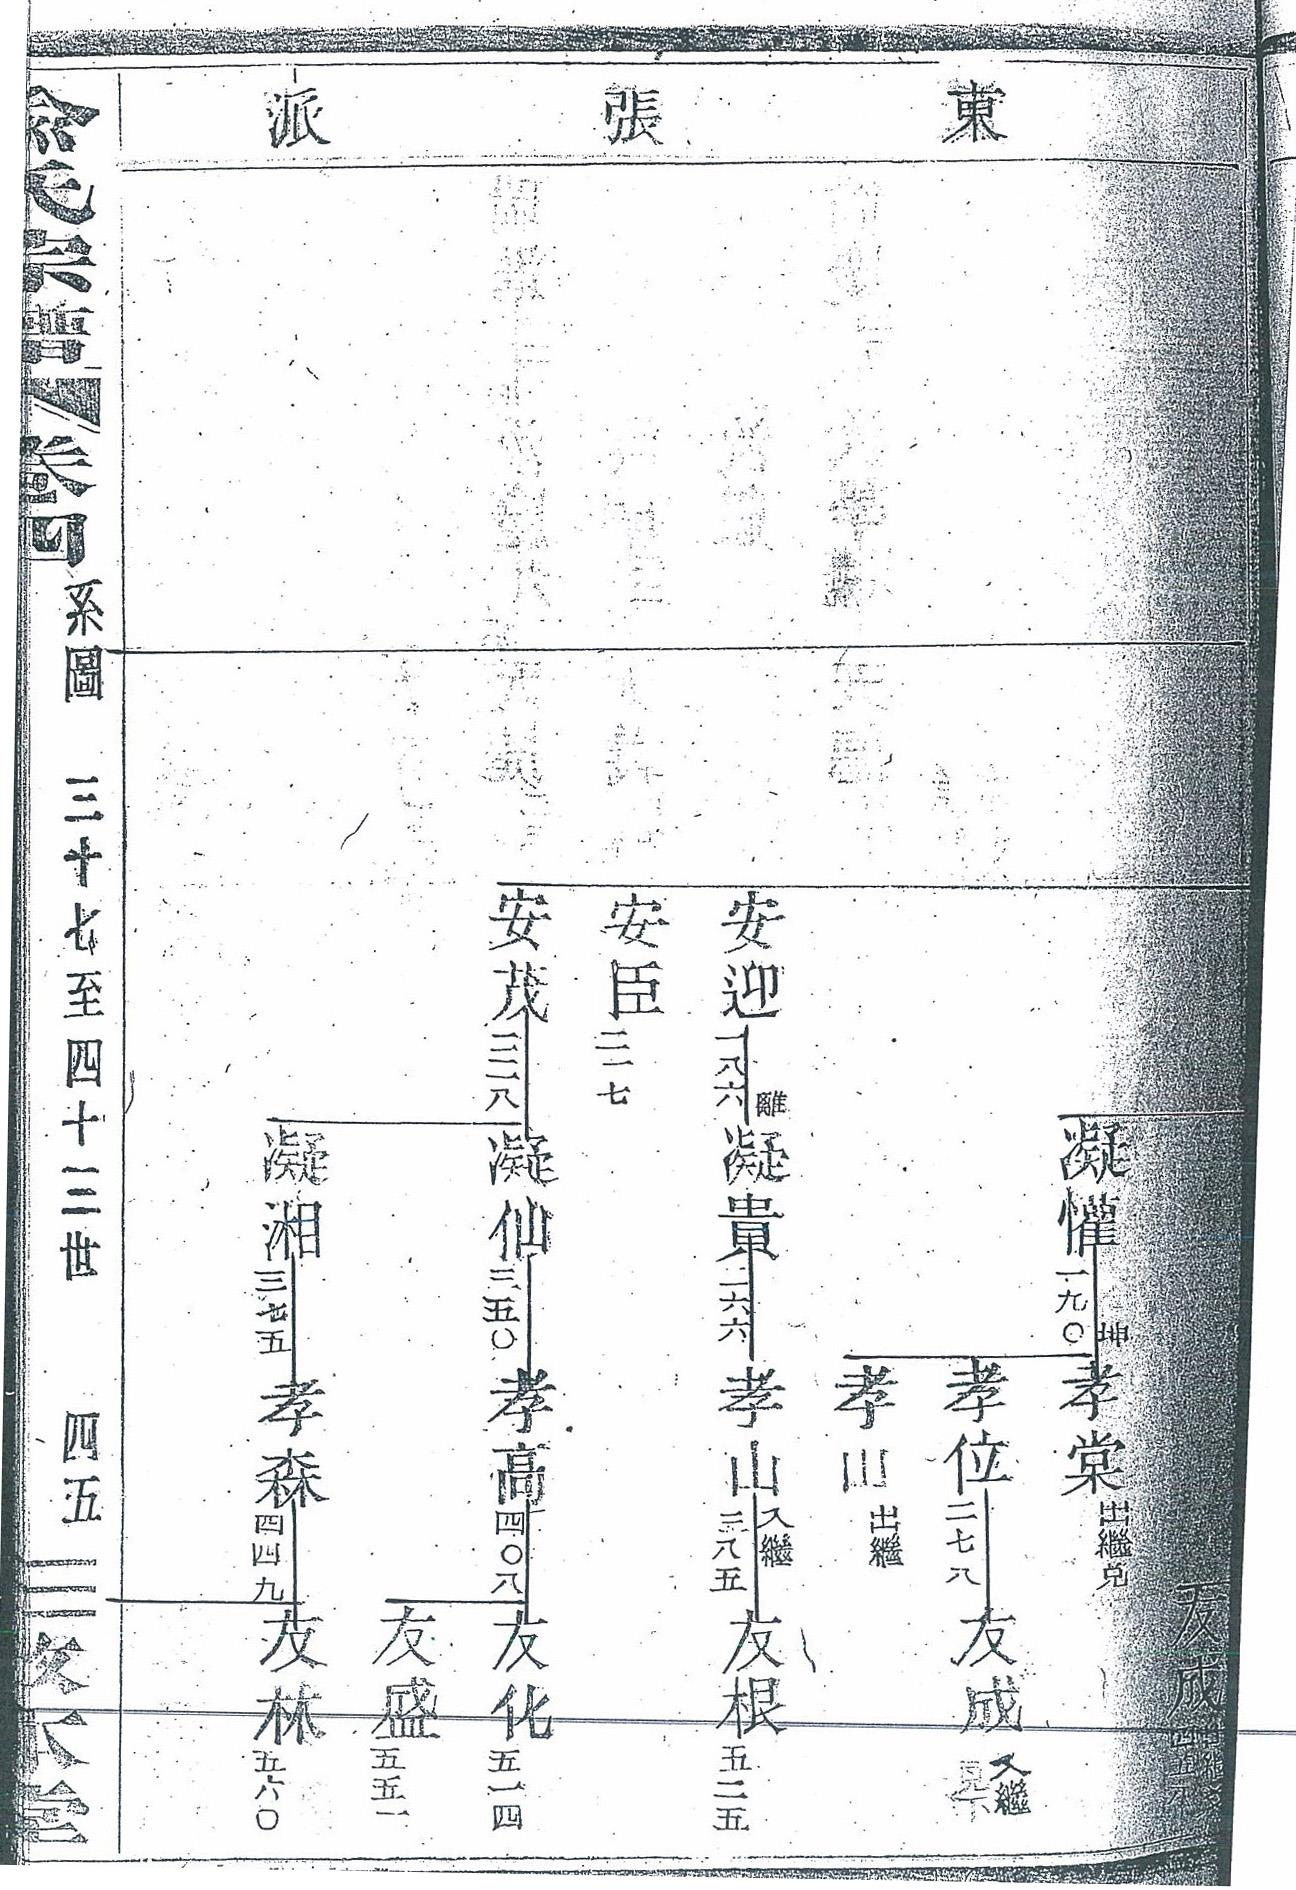 東張派
友成
凝懽
一九〇
坤
孝棠
出繼兌
孝位
二七八
友成
入繼
孝山
出繼
安迎
一八六
離
凝貴
二六六
孝山
入繼
三八五
友根
五二五
安臣
二一七
安茂
凝仙
三五〇
孝高
四〇八
友化
五一四
友盛
五五一
凝湘
三七五
孝森
四四九
友林
五六〇
氏宗譜
卷四
系圖
三十七至四十二世
四五